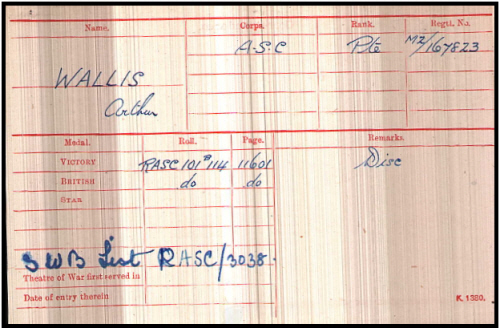 Name. Corps. Rank. Regtl. No.
A.S.C Pte M2/167823
WALLIS
Arthur
Medal. Roll. Page. Remarks.
VICTORY RASC 101 B 114 11601 Disc
BRITISH do do
STAR
S W B List RASC/3038.
Theatre of War first served in
Date of entry therein
K. 1380.